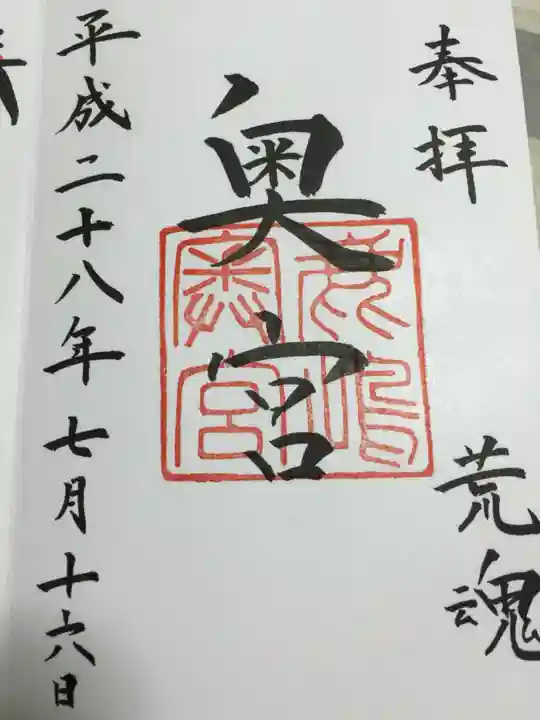 奉拝
荒魂
奥宮
鹿嶋
奥宮
平成二十八年七月十六日